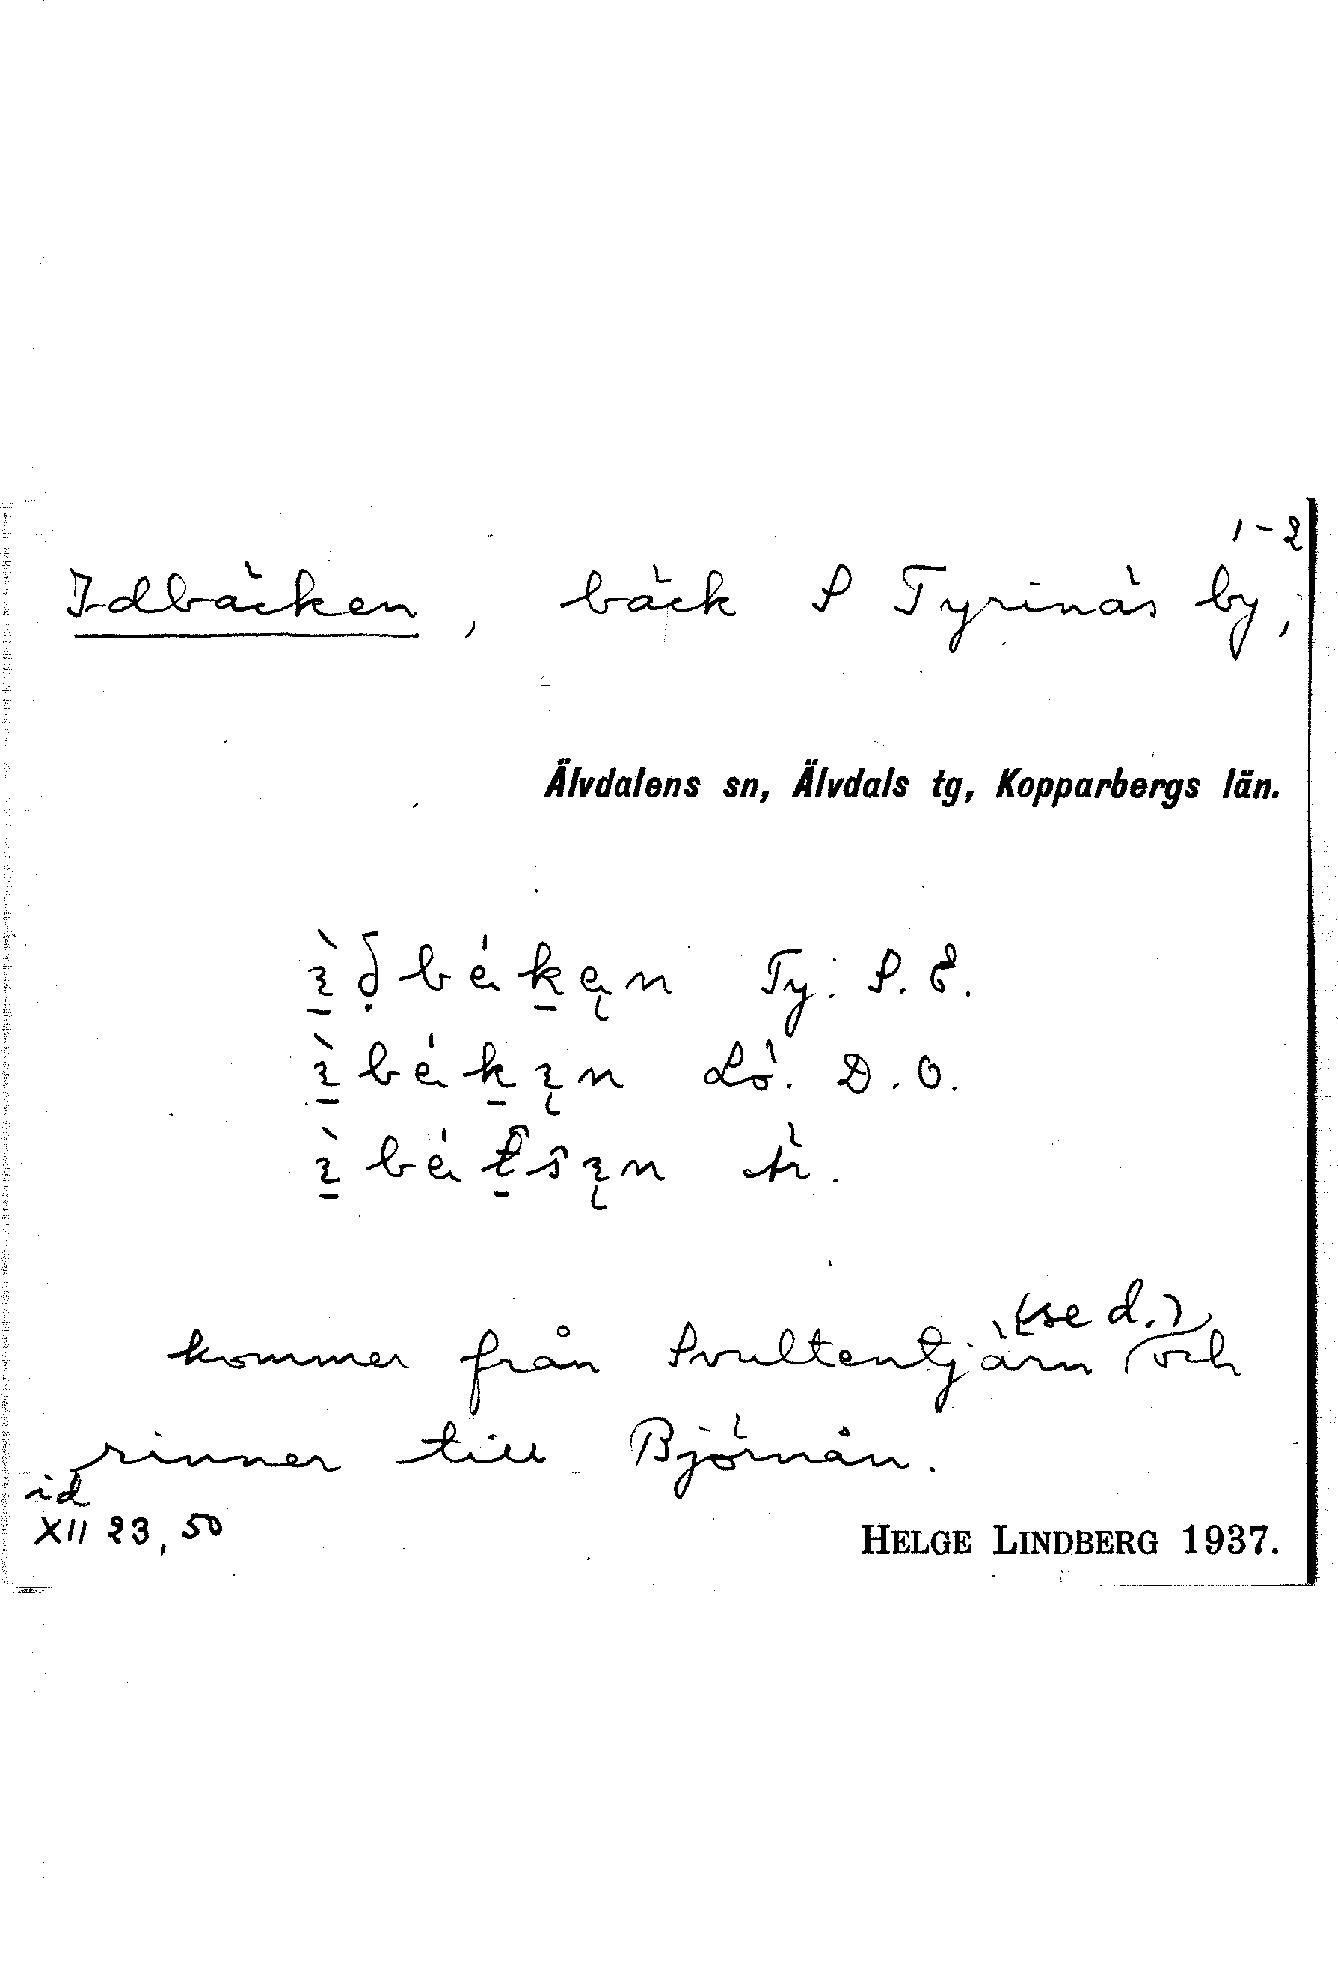 1-2
Idbäcken, bäck S Tyrinäs by,
Älvdalens sn, Älvdals tg, Kopparbergs län.
Ty. S. E.
Lö. D. O.
kommer från Svultentjärn (se d.) och
rinner till Björnån.
id
XII 23, 50
HELGE LINDBERG 1937.